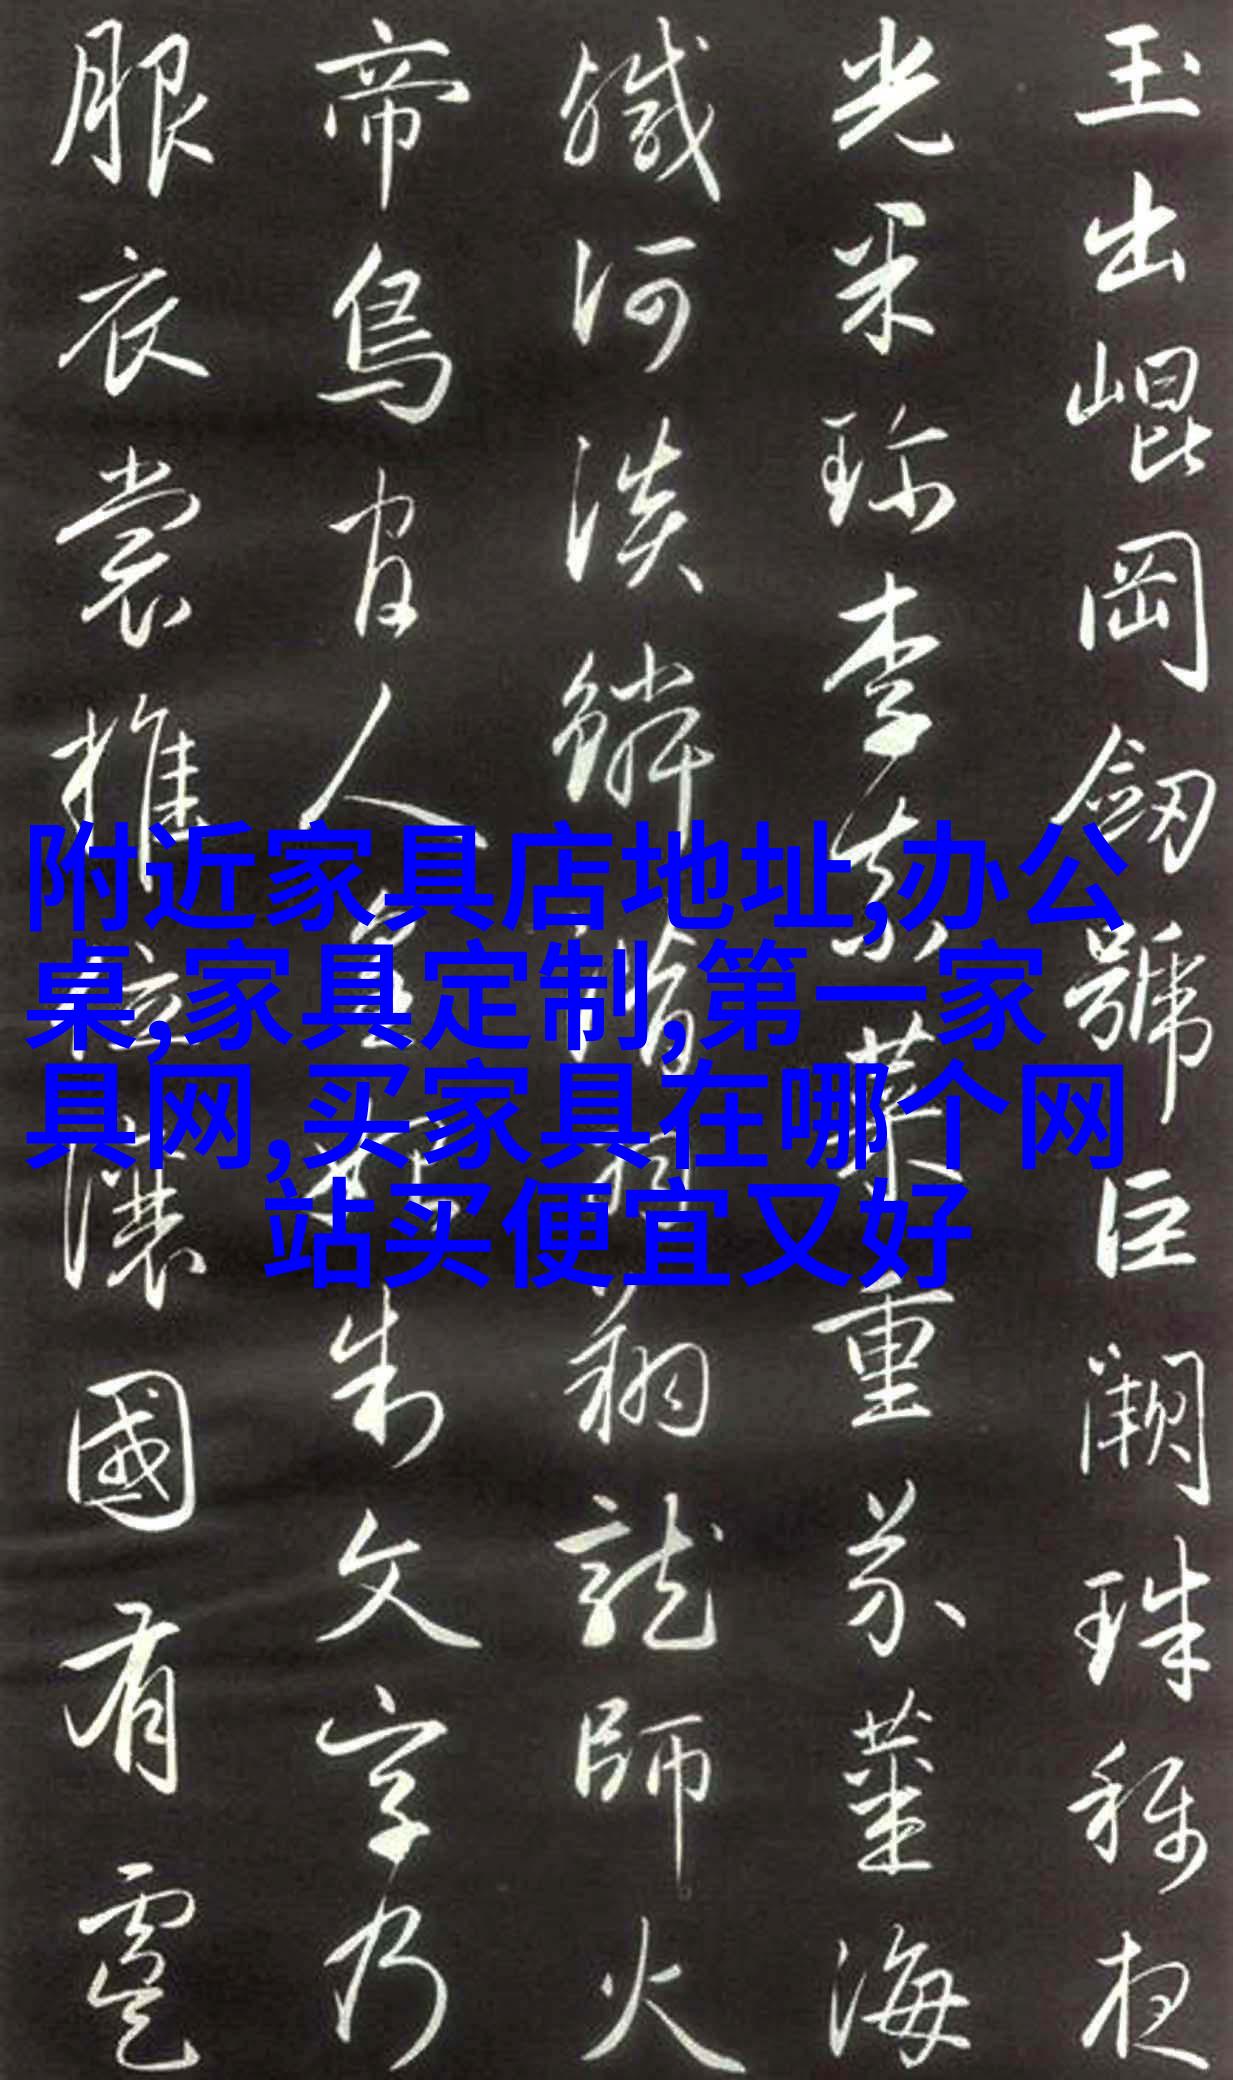 玉出崐岡劒號巨闕珠称夜
光果珍李柰菜重芥薑海
鹹河淡鱗潛羽翔龍師火
帝鳥官人皇始制文字乃
服衣裳推位讓國有虞
附近家具店地址,办公
桌,家具定制,第一家
具网,买家具在哪个网
站买便宜又好